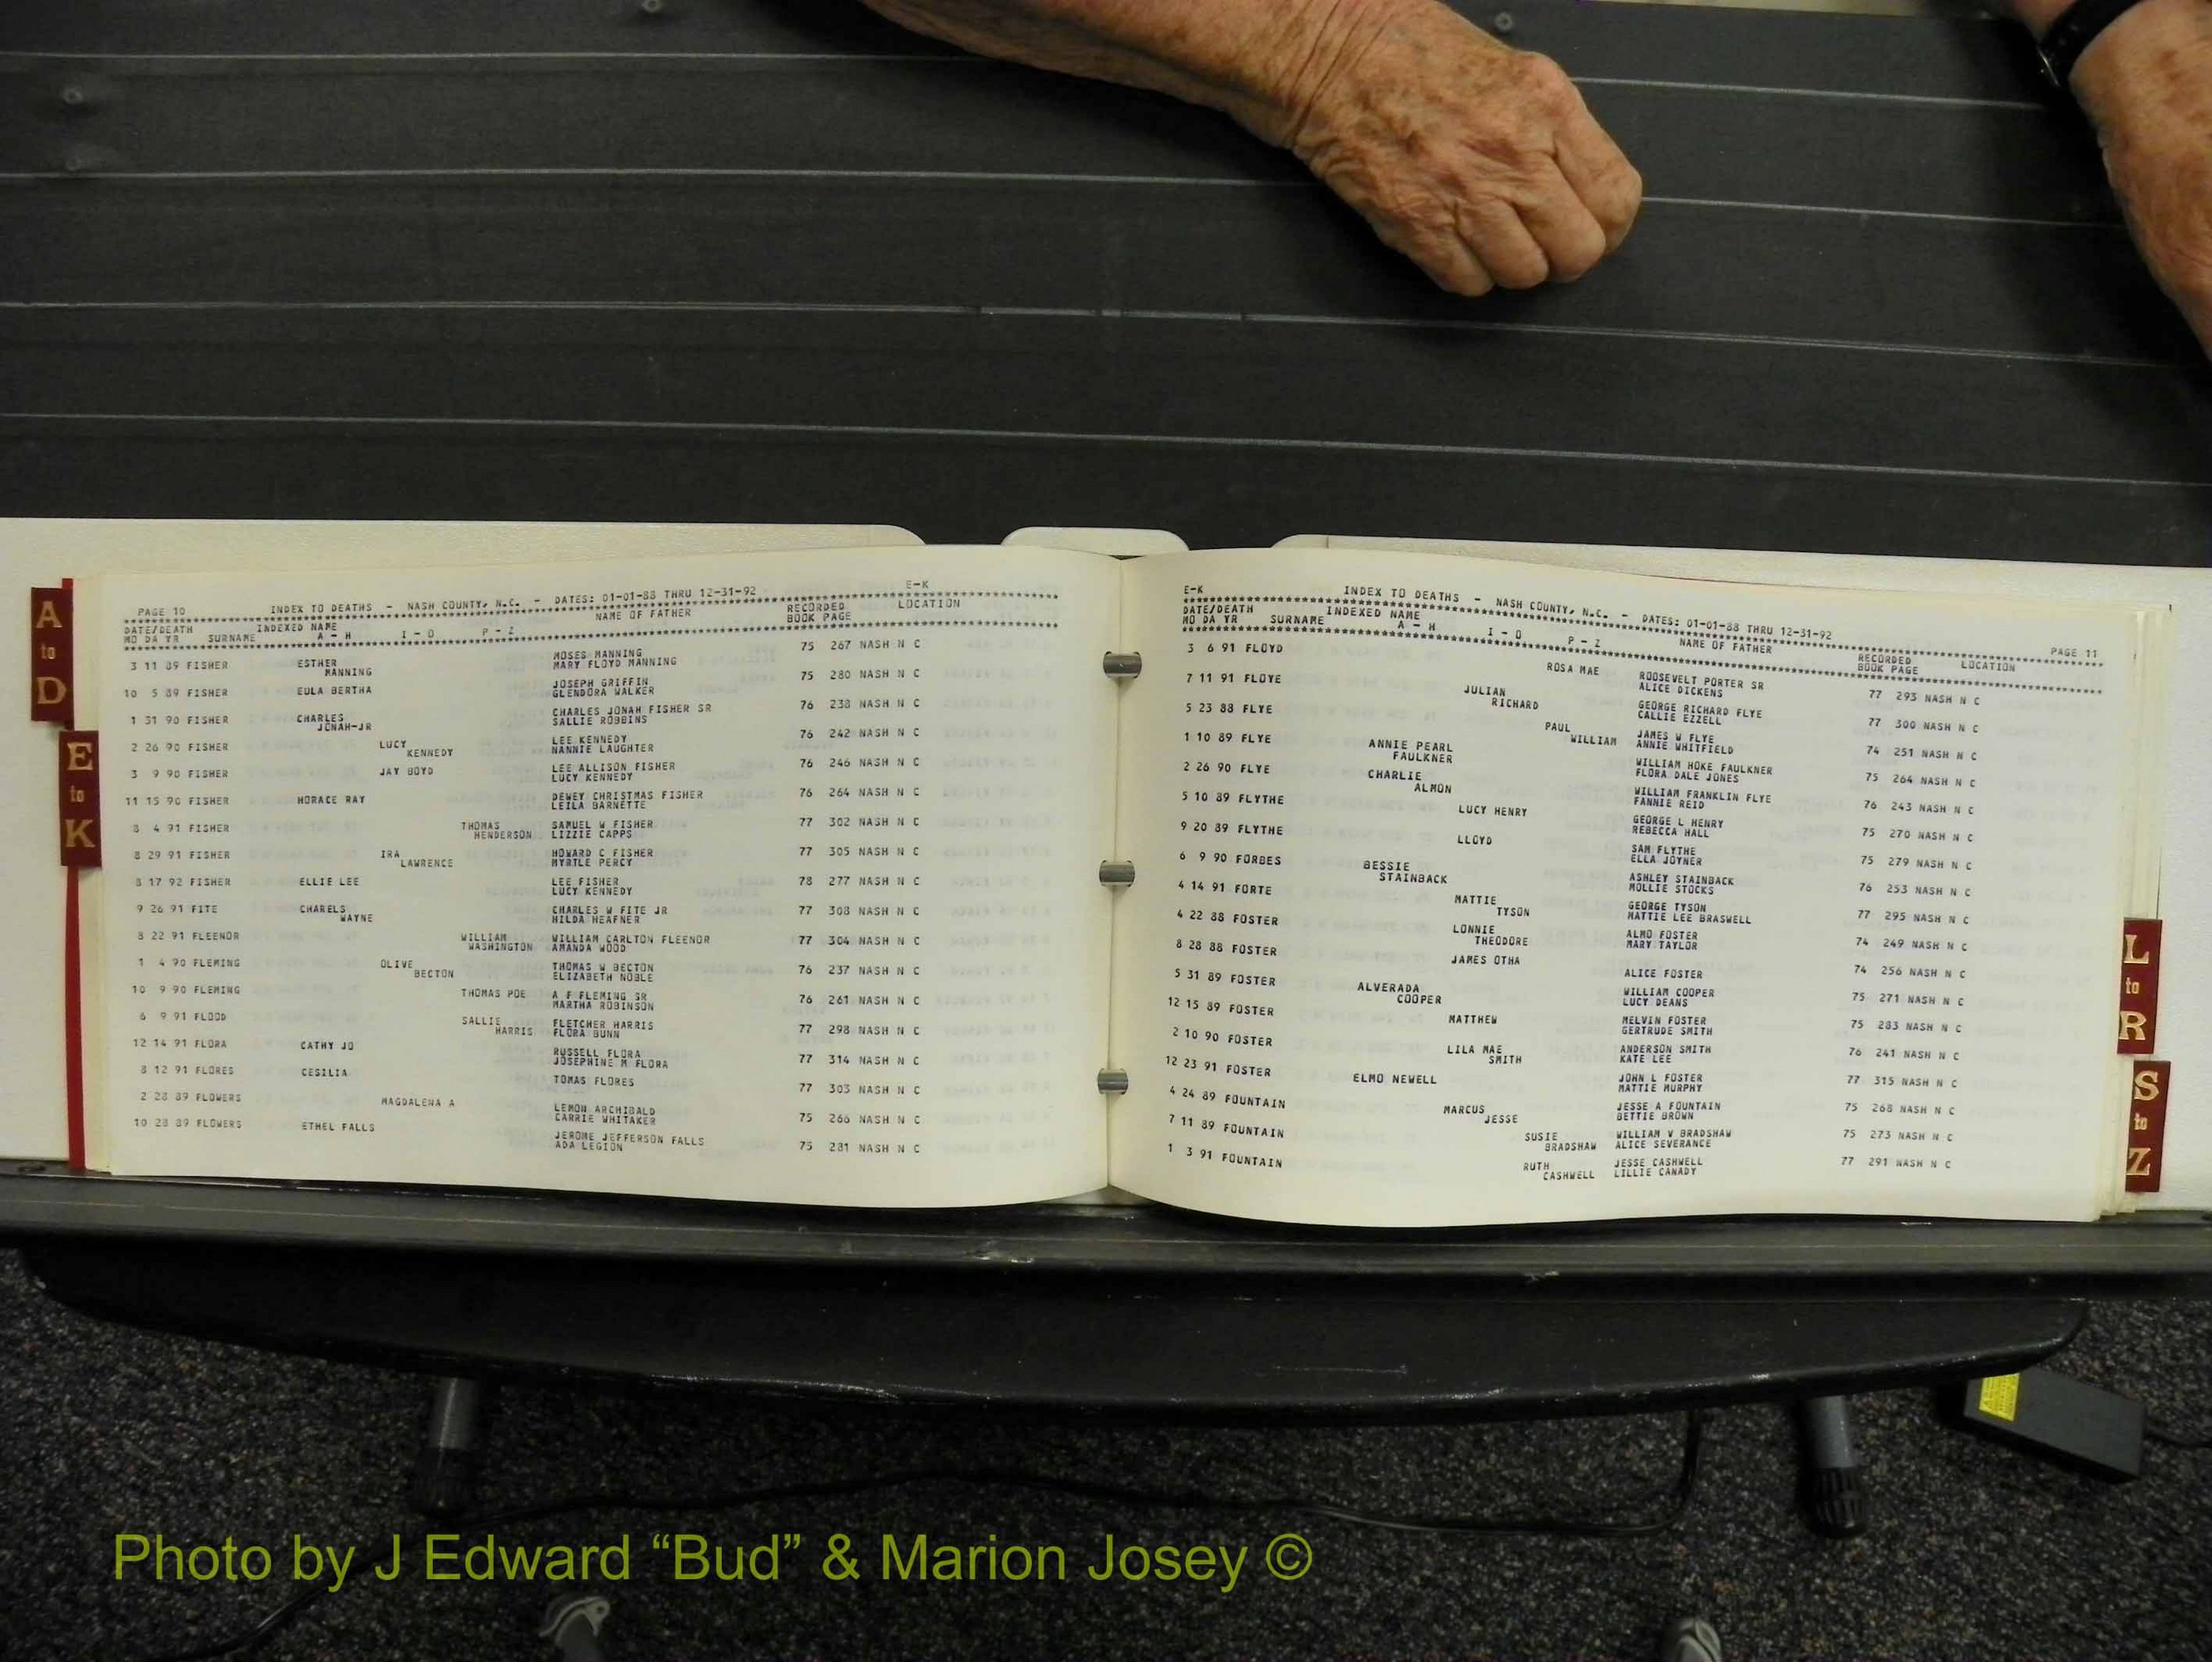 A
to
D
E
to
K
E-K
PAGE 10 INDEX TO DEATHS - NASH COUNTY, N.C. - DATES: 01-01-88 THRU 12-31-92
DATE/DEATH INDEXED NAME NAME OF FATHER RECORDED LOCATION
MO DA YR SURNAME A - H I - O P - Z BOOK PAGE
3 11 89 FISHER ESTHER MOSES MANNING 75 267 NASH N C
MANNING MARY FLOYD MANNING
10 5 89 FISHER EULA BERTHA JOSEPH GRIFFIN 75 280 NASH N C
GLENDORA WALKER
1 31 90 FISHER CHARLES CHARLES JONAH FISHER SR 76 238 NASH N C
JONAH-JR SALLIE ROBBINS
2 26 90 FISHER LUCY LEE KENNEDY 76 242 NASH N C
KENNEDY NANNIE LAUGHTER
3 9 90 FISHER JAY BOYD LEE ALLISON FISHER 76 246 NASH N C
LUCY KENNEDY
11 15 90 FISHER HORACE RAY DEWEY CHRISTMAS FISHER 76 264 NASH N C
LEILA BARNETTE
8 4 91 FISHER THOMAS SAMUEL W FISHER 77 302 NASH N C
HENDERSON LIZZIE CAPPS
8 29 91 FISHER IRA HOWARD C FISHER 77 305 NASH N C
LAWRENCE MYRTLE PERCY
8 17 92 FISHER ELLIE LEE LEE FISHER 78 277 NASH N C
LUCY KENNEDY
9 26 91 FITE CHARELS CHARLES W FITE JR 77 308 NASH N C
WAYNE HILDA HEAFNER
8 22 91 FLEENOR WILLIAM WILLIAM CARLTON FLEENOR 77 304 NASH N C
WASHINGTON AMANDA WOOD
1 4 90 FLEMING OLIVE THOMAS W BECTON 76 237 NASH N C
BECTON ELIZABETH NOBLE
10 9 90 FLEMING THOMAS POE A F FLEMING SR 76 261 NASH N C
MARTHA ROBINSON
6 9 91 FLOOD SALLIE FLETCHER HARRIS 77 298 NASH N C
HARRIS FLORA BUNN
12 14 91 FLORA CATHY JO RUSSELL FLORA 77 314 NASH N C
JOSEPHINE M FLORA
8 12 91 FLORES CESILIA TOMAS FLORES 77 303 NASH N C
2 28 89 FLOWERS MAGDALENA A LEMON ARCHIBALD 75 266 NASH N C
CARRIE WHITAKER
10 28 89 FLOWERS ETHEL FALLS JEROME JEFFERSON FALLS 75 281 NASH N C
ADA LEGION
E-K INDEX TO DEATHS - NASH COUNTY, N.C. - DATES: 01-01-88 THRU 12-31-92 PAGE 11
DATE/DEATH INDEXED NAME NAME OF FATHER RECORDED LOCATION
MO DA YR SURNAME A - H I - O P - Z BOOK PAGE
3 6 91 FLOYD ROSA MAE ROOSEVELT PORTER SR 77 293 NASH N C
ALICE DICKENS
7 11 91 FLOYE JULIAN GEORGE RICHARD FLYE 77 300 NASH N C
RICHARD CALLIE EZZELL
5 23 88 FLYE PAUL JAMES W FLYE 74 251 NASH N C
WILLIAM ANNIE WHITFIELD
1 10 89 FLYE ANNIE PEARL WILLIAM HOKE FAULKNER 75 264 NASH N C
FAULKNER FLORA DALE JONES
2 26 90 FLYE CHARLIE WILLIAM FRANKLIN FLYE 76 243 NASH N C
ALMON FANNIE REID
5 10 89 FLYTHE LUCY HENRY GEORGE L HENRY 75 270 NASH N C
REBECCA HALL
9 20 89 FLYTHE LLOYD SAM FLYTHE 75 279 NASH N C
ELLA JOYNER
6 9 90 FORBES BESSIE ASHLEY STAINBACK 76 253 NASH N C
STAINBACK MOLLIE STOCKS
4 14 91 FORTE MATTIE GEORGE TYSON 77 295 NASH N C
TYSON MATTIE LEE BRASWELL
4 22 88 FOSTER LONNIE ALMO FOSTER 74 249 NASH N C
THEODORE MARY TAYLOR
8 28 88 FOSTER JAMES OTHA ALICE FOSTER 74 256 NASH N C
5 31 89 FOSTER ALVERADA WILLIAM COOPER 75 271 NASH N C
COOPER LUCY DEANS
12 15 89 FOSTER MATTHEW MELVIN FOSTER 75 283 NASH N C
GERTRUDE SMITH
2 10 90 FOSTER LILA MAE ANDERSON SMITH 76 241 NASH N C
SMITH KATE LEE
12 23 91 FOSTER ELMO NEWELL JOHN L FOSTER 77 315 NASH N C
MATTIE MURPHY
4 24 89 FOUNTAIN MARCUS JESSE A FOUNTAIN 75 268 NASH N C
JESSE BETTIE BROWN
7 11 89 FOUNTAIN SUSIE WILLIAM V BRADSHAW 75 273 NASH N C
BRADSHAW ALICE SEVERANCE
1 3 91 FOUNTAIN RUTH JESSE CASHWELL 77 291 NASH N C
CASHWELL LILLIE CANADY
L
to
R
S
to
Z
Photo by J Edward “Bud” & Marion Josey ©